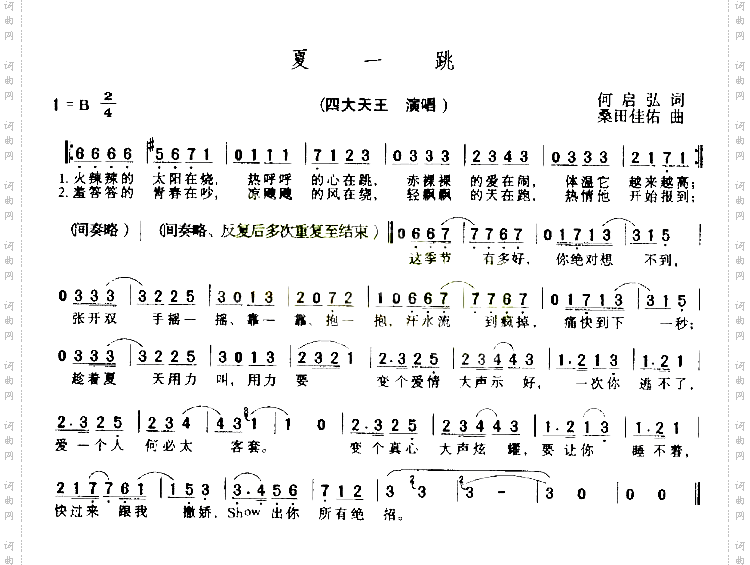 夏 一 跳
1 = B 2/4 (四大天王 演唱) 何启弘 词
桑田佳佑 曲
6 6 6 6 | #5 6 7 1 | 0 1 1 1 | 7 1 2 3 | 0 3 3 3 | 3 0 4 3 | 0 3 3 3 | 3 0 2 1
1. 火辣辣的 太阳在烧, 热呼呼 的心在跳, 赤裸裸 的爱在闹, 体温它 越来越高;
2. 羞答答的 青春在吵, 凉飕飕 的风在绕, 轻飘飘 的天在跑, 热情他 开始报到;
(间奏略) | (间奏略、反复后多次重复至结束) 0 6 6 7 | 7 7 6 7 | 0 1 7 1 3 | 3 1 5
这季节 有多好, 你绝对想 不到,
0 3 3 3 | 3 2 2 5 | 3 0 1 3 | 2 0 7 2 | 1 0 6 6 7 | 7 7 6 7 | 0 1 7 1 3 | 3 1 5
张开双 手摇一 摇、靠一 靠、抱一 抱, 汗水流 到疯掉, 痛快到下 一秒;
0 3 3 3 | 3 2 2 5 | 3 0 1 3 | 3 2 0 | 2. 3 2 5 | 2 3 4 4 3 | 1. 2 1 3 | 0. 2 1
趁着夏 天用力 叫, 用力 要 变个爱情 大声示 好, 一次你 逃不了,
2. 3 2 5 | 2 3 4 | 4 3 1 | 1 0 | 2. 3 2 5 | 2 3 4 4 3 | 1. 2 1 3 | 0. 2 1
爱一个人 何必太 客套。 变个真心 大声炫 耀, 要让你 睡不着,
2 1 7 7 6 1 | 1 5 3 | 3. 4 5 6 | 7 1 2 | 3 3 | 3 - | 3 0 | 0 0
快过来 跟我 撒娇, Show 出你 所有绝 招。
词曲网